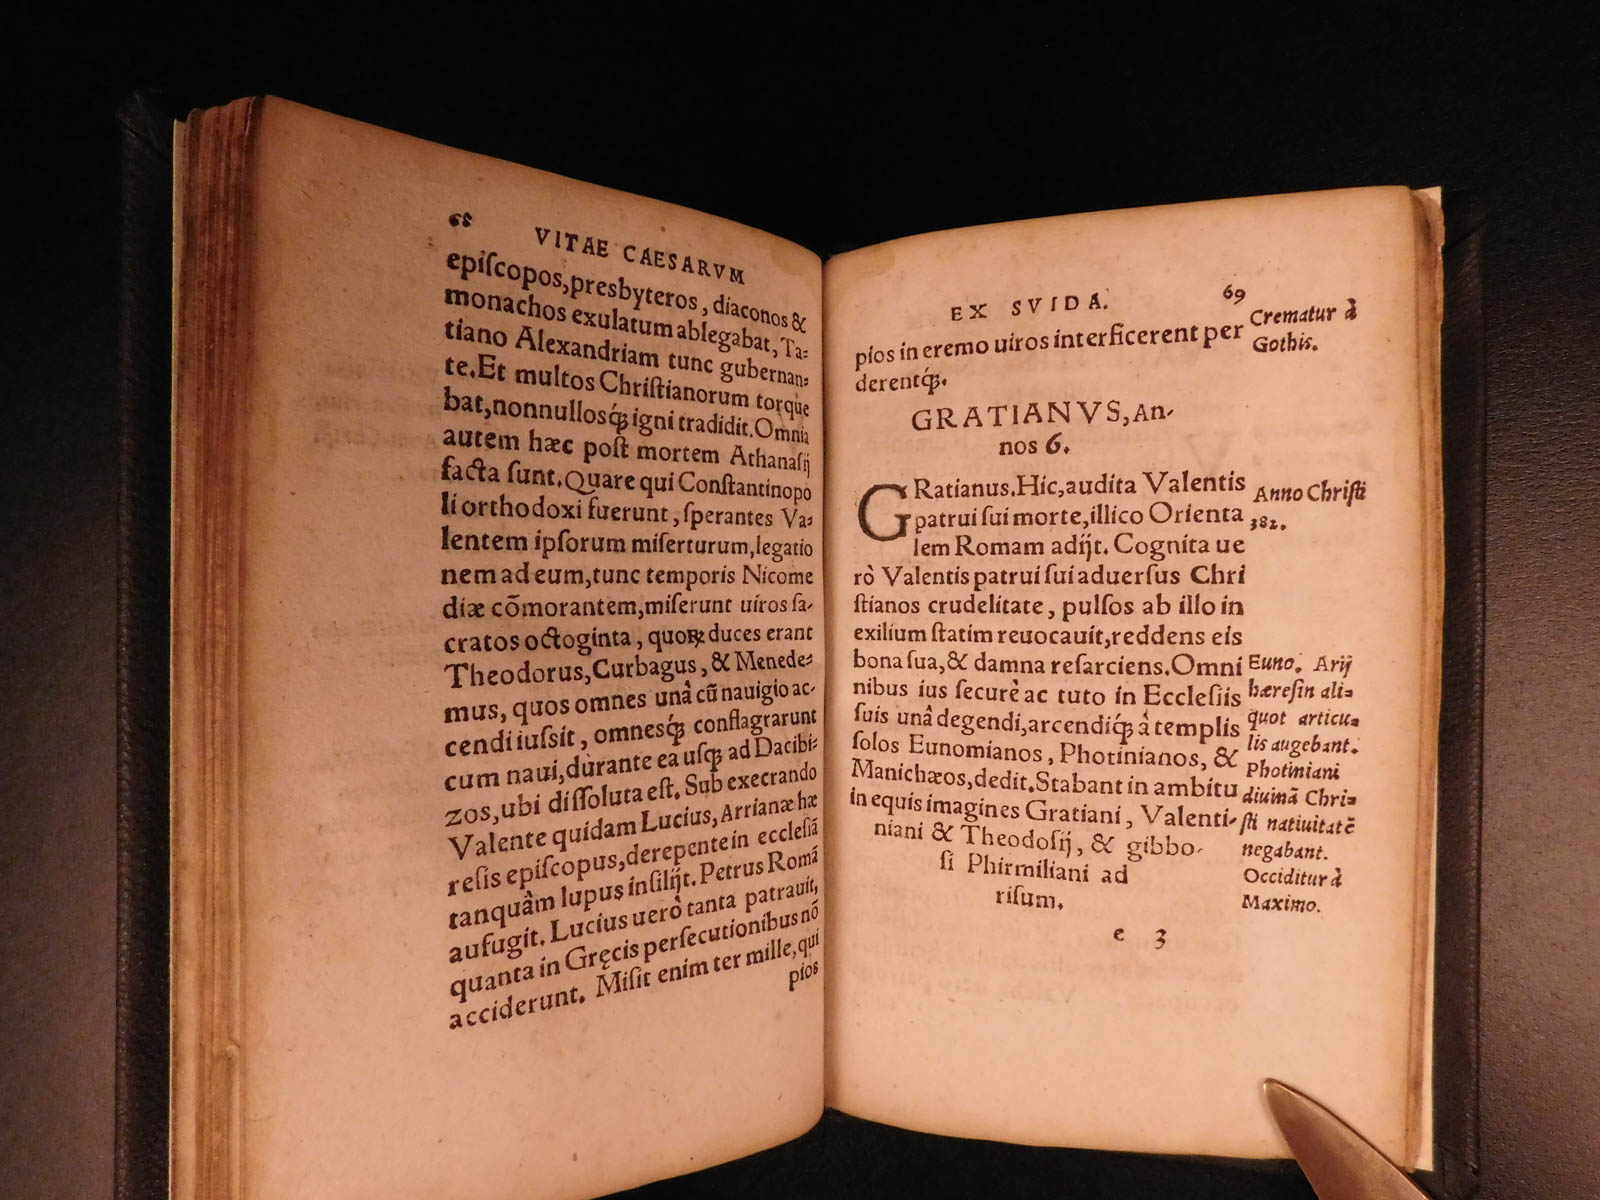 68
VITAE CAESARVM
epiſcopos,presbyteros, diaconos &
monachos exulatum ablegabat, Ta⸗
tiano Alexandriam tunc gubernan⸗
te. Et multos Chriſtianorum torque
bat,nonnullosq́; igni tradidit. Omnia
autem hæc poſt mortem Athanaſij
facta ſunt. Quare qui Conſtantinopo
li orthodoxi fuerunt, ſperantes Va⸗
lentem ipſorum miſerturum,legatio
nem ad eum,tunc temporis Nicome
diæ cōmorantem,miſerunt uiros ſa⸗
cratos octoginta, quoꝝ duces erant
Theodorus,Curbagus, & Menede⸗
mus, quos omnes unà cū nauigio ac⸗
cendi iuſsit, omnesq́; conflagrarunt
cum naui,durante ea uſq; ad Dacibi⸗
zos,ubi diſſoluta eſt. Sub execrando
Valente quidam Lucius, Arrianæ hæ
reſis epiſcopus,derepente in eccleſiā
tanquàm lupus inſilijt. Petrus Romā
aufugit. Lucius uerò tanta patrauit,
quanta in Gręcis perſecutionibus nō
acciderunt. Miſit enim ter mille,qui
pios
EX SVIDA.
69
pios in eremo uiros interficerent per
derentq́;.
Crematur à
Gothis.
GRATIANVS, An⸗
nos 6.
GRatianus. Hic,audita Valentis
patrui ſui morte,illico Orienta
lem Romam adijt. Cognita ue
rò Valentis patrui ſui aduerſus Chri
ſtianos crudelitate, pulſos ab illo in
exilium ſtatim reuocauit,reddens eis
bona ſua,& damna reſarciens. Omni
nibus ius ſecurè ac tuto in Eccleſiis
ſuis unà degendi,arcendiq́; à templis
ſolos Eunomianos, Photinianos, &
Manichæos,dedit. Stabant in ambitu
in equis imagines Gratiani, Valenti⸗
niani & Theodoſij, & gibbo⸗
ſi Phirmiliani ad
riſum.
Anno Chriſti
382.
Euno. Arij
hæreſin ali⸗
quot articu⸗
lis augebant.
Photiniani
diuinā Chri⸗
ſti natiuitatē
negabant.
Occiditur à
Maximo.
e 3